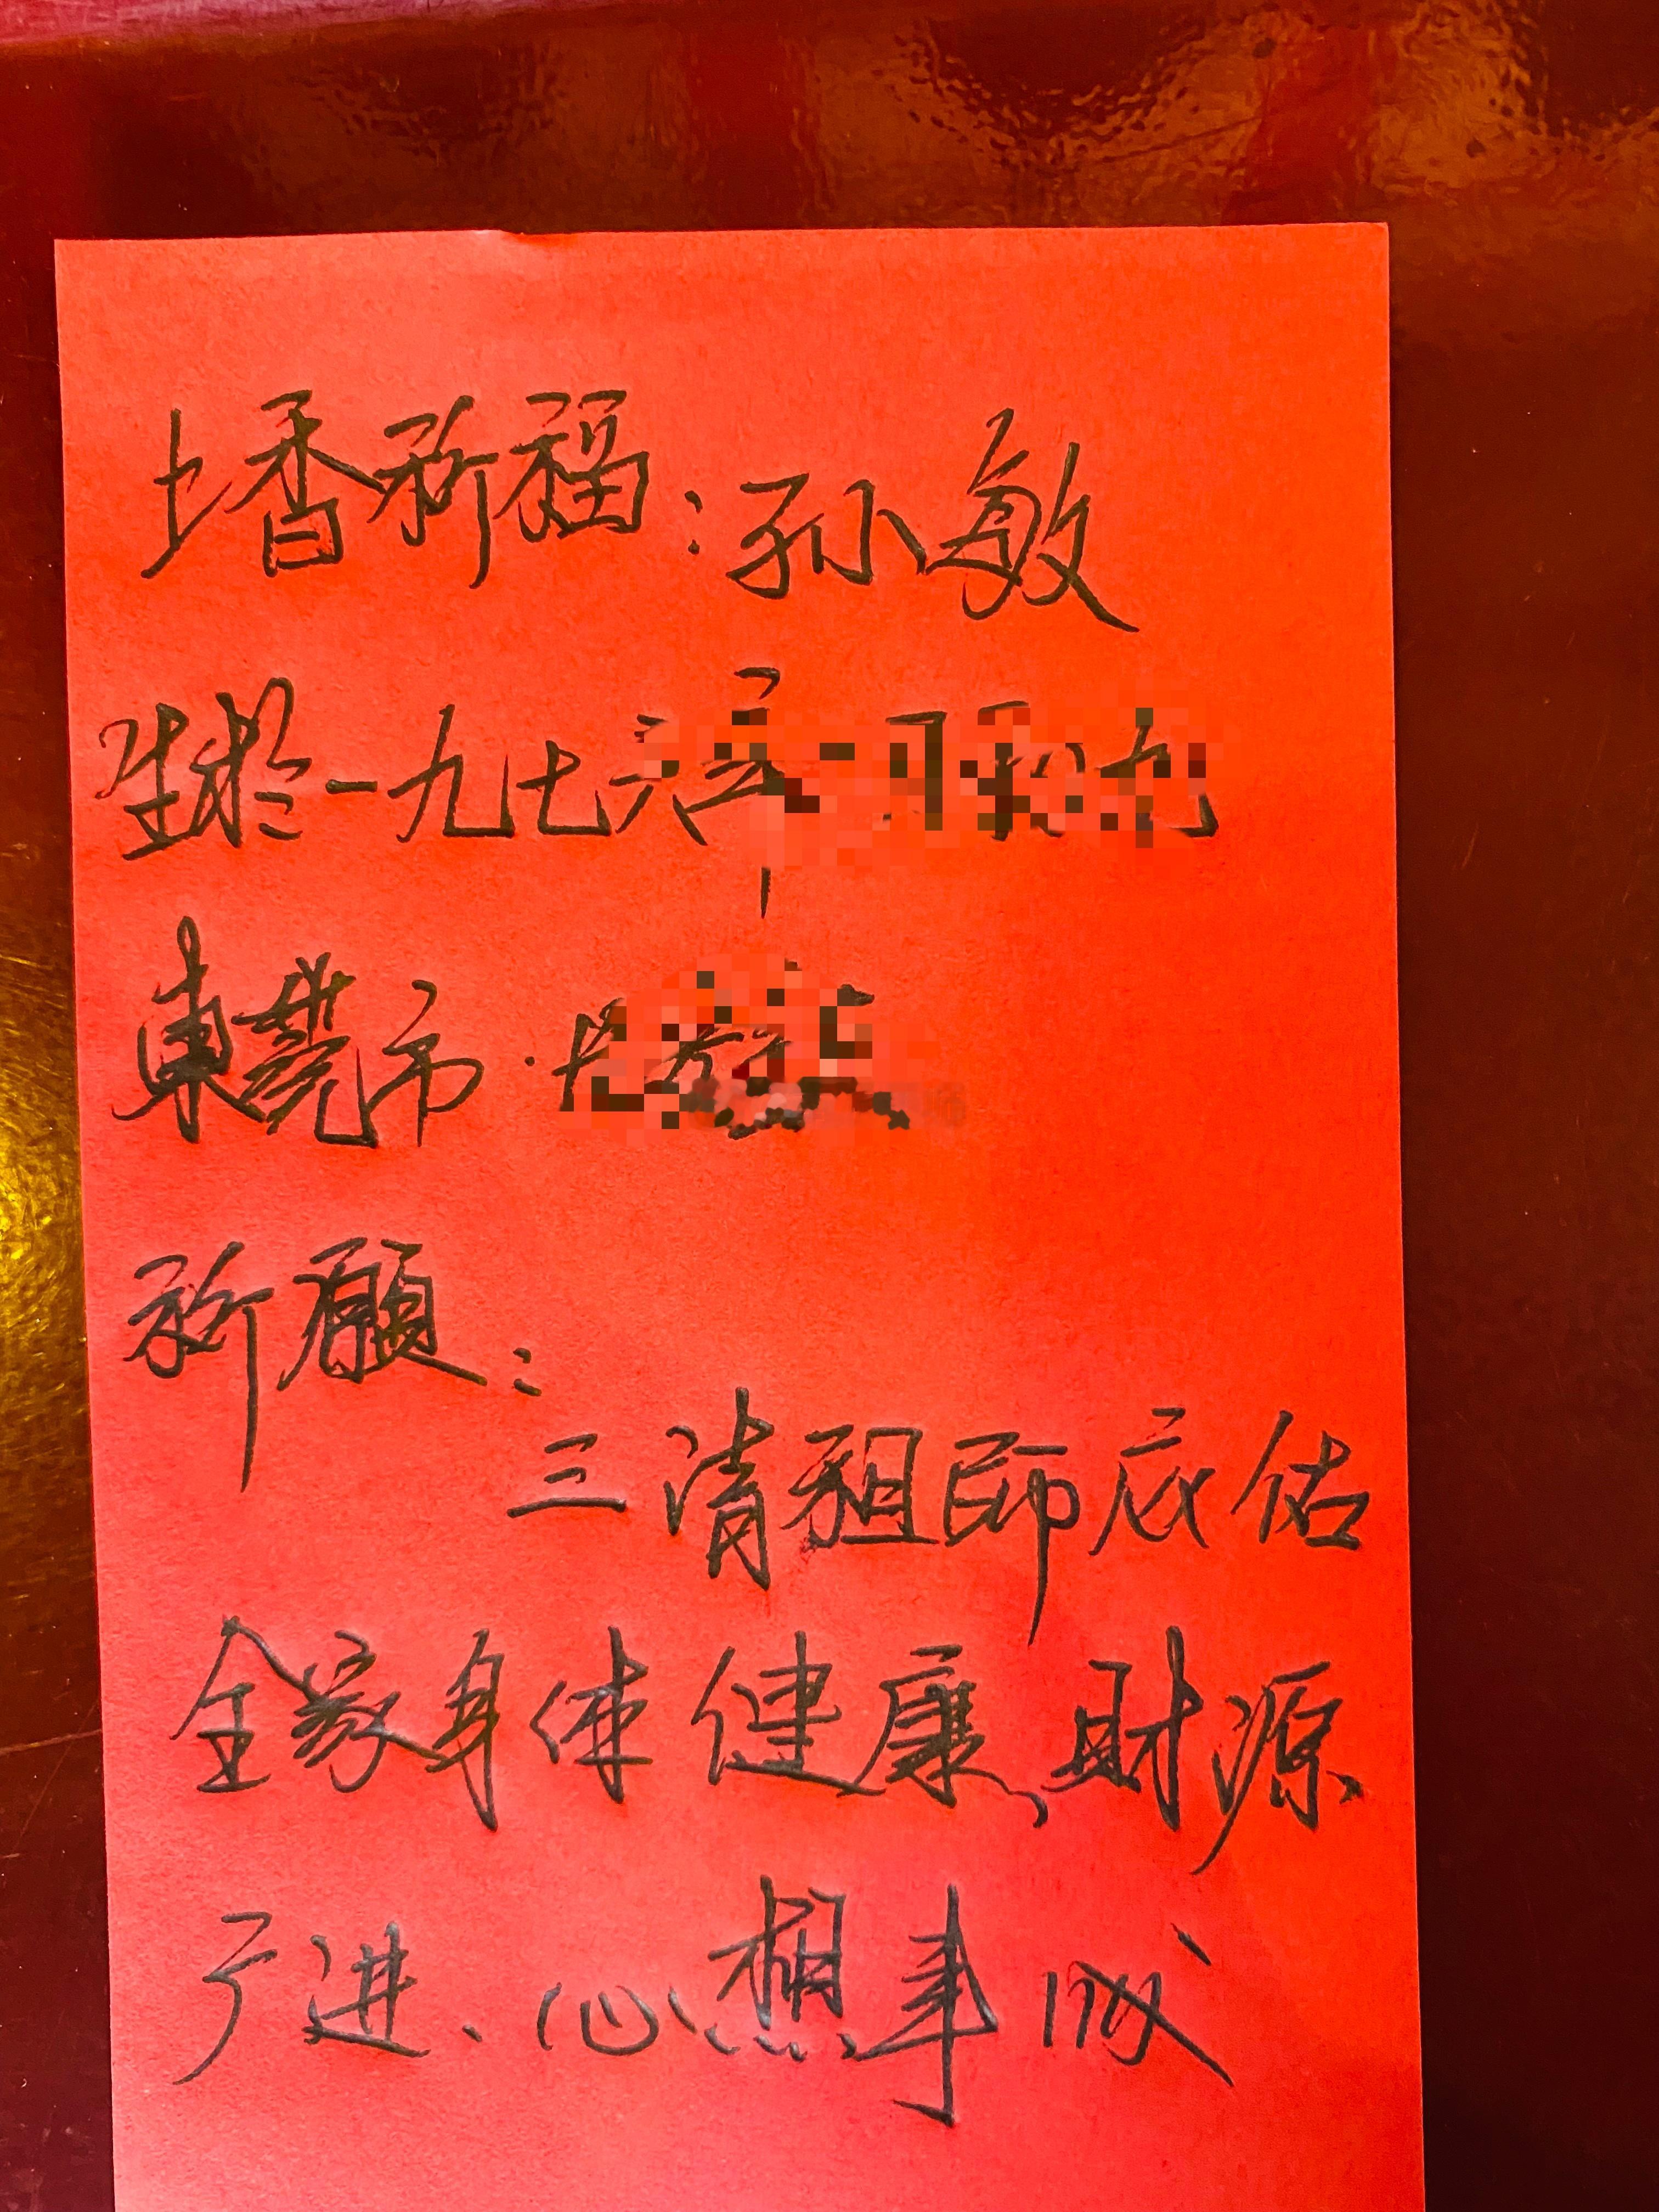 上香祈福：孙敏
生於一九七六年
東莞市·
祈願：
三清祖師庇佑
全家身体健康、財源
广进、心想事成